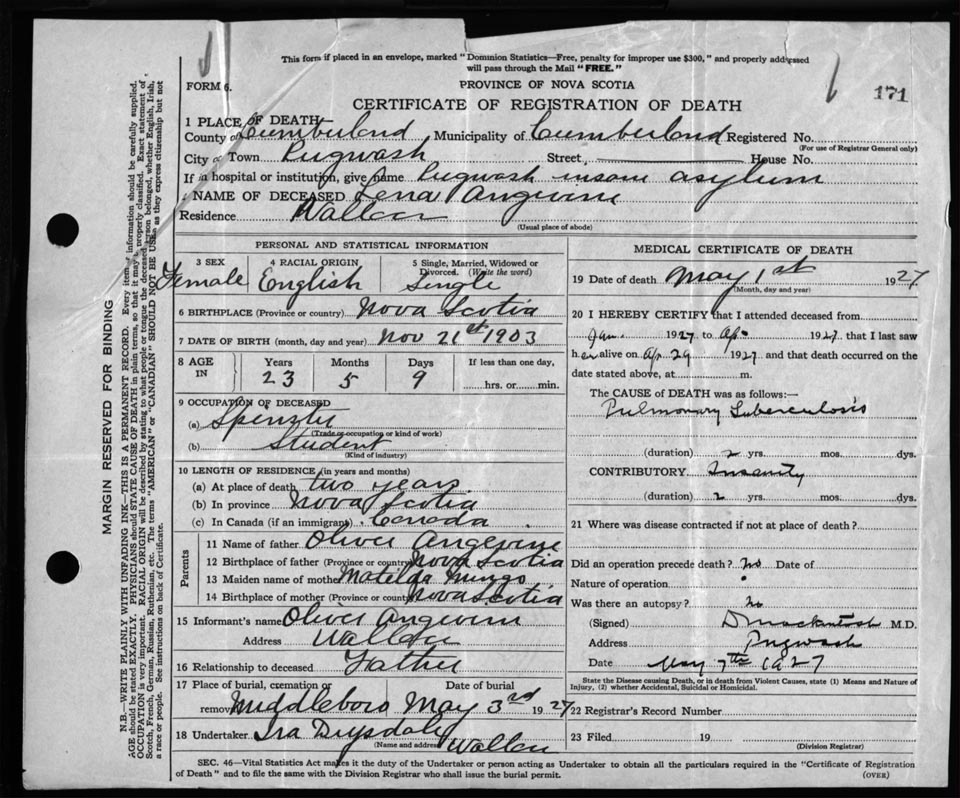 This form if placed in an envelope, marked "Dominion Statistics—Free, penalty for improper use $300," and properly addressed
will pass through the Mail "FREE."
FORM 6.
PROVINCE OF NOVA SCOTIA
171
CERTIFICATE OF REGISTRATION OF DEATH
1 PLACE OF DEATH
County of Cumberland Municipality of Cumberland Registered No.
(For use of Registrar General only)
City or Town Pugwash Street, House No.
If in hospital or institution, give name Pugwash insane asylum
NAME OF DECEASED Lena Angevine
Residence Wallace
(Usual place of abode)
PERSONAL AND STATISTICAL INFORMATION
3 SEX 4 RACIAL ORIGIN 5 Single, Married, Widowed or
Divorced. (Write the word)
Female English Single
6 BIRTHPLACE (Province or country) Nova Scotia
7 DATE OF BIRTH (month, day and year) Nov 21st 1903
8 AGE IN Years Months Days If less than one day,
23 5 9 hrs. or min.
9 OCCUPATION OF DECEASED
(a) Spinster
(Trade or occupation or kind of work)
(b) Student
(Kind of industry)
10 LENGTH OF RESIDENCE (in years and months)
(a) At place of death two years
(b) In province Nova Scotia
(c) In Canada (if an immigrant) Canada
Parents
11 Name of father Oliver Angevine
12 Birthplace of father (Province or country) Nova Scotia
13 Maiden name of mother Matilda Mingo
14 Birthplace of mother (Province or country) Nova Scotia
15 Informant's name Oliver Angevine
Address Wallace
16 Relationship to deceased Father
17 Place of burial, cremation or removal Date of burial
Middleboro May 3rd 1927
18 Undertaker Ira Drysdale
(Name and address) Wallace
MEDICAL CERTIFICATE OF DEATH
19 Date of death May 1st 1927
(Month, day and year)
20 I HEREBY CERTIFY that I attended deceased from
Jan. 1927 to Ap. 1927 that I last saw
her alive on Ap. 29 1927 and that death occurred on the
date stated above, at m.
The CAUSE of DEATH was as follows:—
Pulmonary Tuberculosis
(duration) 2 yrs. mos. dys.
CONTRIBUTORY Insanity
(duration) 2 yrs. mos. dys.
21 Where was disease contracted if not at place of death?
Did an operation precede death? no Date of
Nature of operation
Was there an autopsy? no
(Signed) D Mackintosh M.D.
Address Pugwash
Date May 7th 1927
State the Disease causing Death, or in death from Violent Causes, state (1) Means and Nature of
Injury, (2) whether Accidental, Suicidal or Homicidal.
22 Registrar's Record Number
23 Filed 19
(Division Registrar)
SEC. 46—Vital Statistics Act makes it the duty of the Undertaker or person acting as Undertaker to obtain all the particulars required in the "Certificate of Registration
of Death" and to file the same with the Division Registrar who shall issue the burial permit.
(OVER)
MARGIN RESERVED FOR BINDING
N.B.—WRITE PLAINLY WITH UNFADING INK—THIS IS A PERMANENT RECORD. Every item of information should be carefully supplied.
AGE should be stated EXACTLY. PHYSICIANS should STATE CAUSE OF DEATH in plain terms, so that it may be properly classified. Exact statement of
OCCUPATION is very important. RACIAL ORIGIN will be described by stating to what people or tongue the deceased person belonged, whether English, Irish,
Scotch, French, German, Russian, Ruthenian, etc. The terms "AMERICAN" or "CANADIAN" SHOULD NOT BE USED as they express citizenship but not
a race or people. See instructions on back of Certificate.